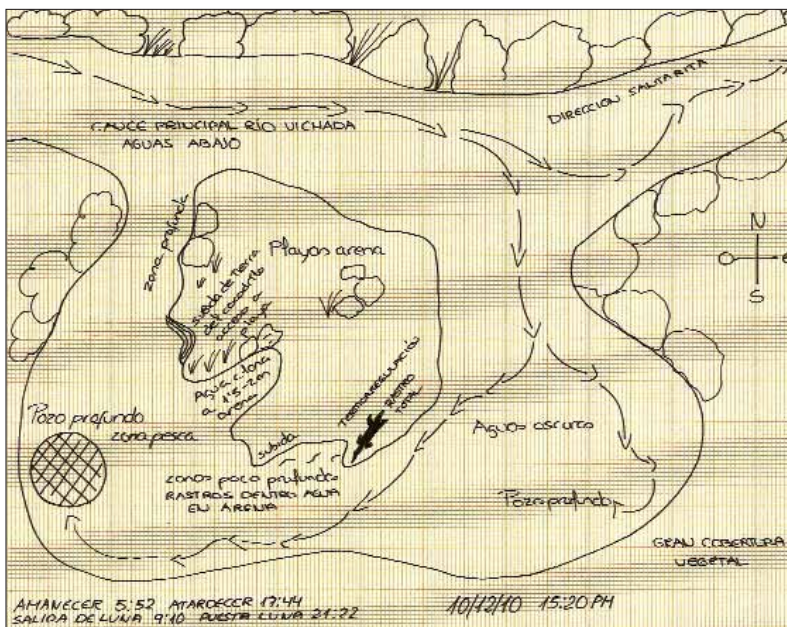 CAUCE PRINCIPAL RÍO VICHADA
AGUAS ABAJO
DIRECCION SANTARITA
zona profunda
Playas arena
subida de tierra
del cocodrilo
acceso a
playa
Agua clara
a 1'5-2m
arena
N
O
e
S
TERMORREGULACIÓN
RASTRO
TOTAL
Pozo profundo
zona pesca
subida
zonas poco profundas
RASTROS DENTRO AGUA
EN ARENA
Aguas oscuras
Pozo profundo
GRAN COBERTURA
VEGETAL
AMANECER 5:52 ATARDECER 17:44
SALIDA DE LUNA 9:10 PUESTA LUNA 21:22
10/12/10 15:20 PM